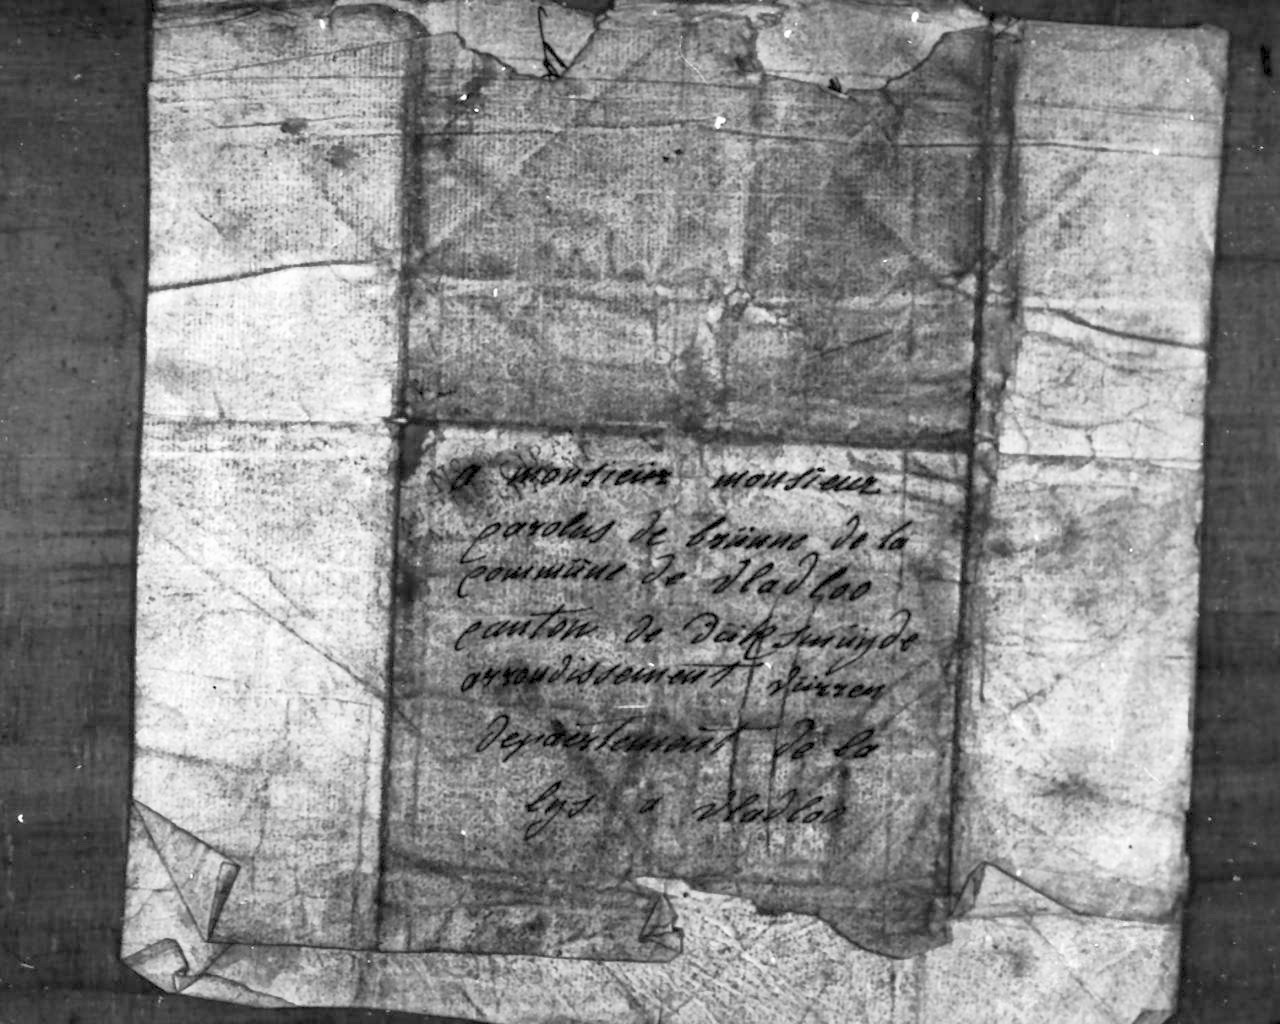 a monsieur monsieur
carolus de brünne de la
commüne de vladsloo
canton de diiksmüyde
arrondissement vürren
departement de la
lys a vladsloo